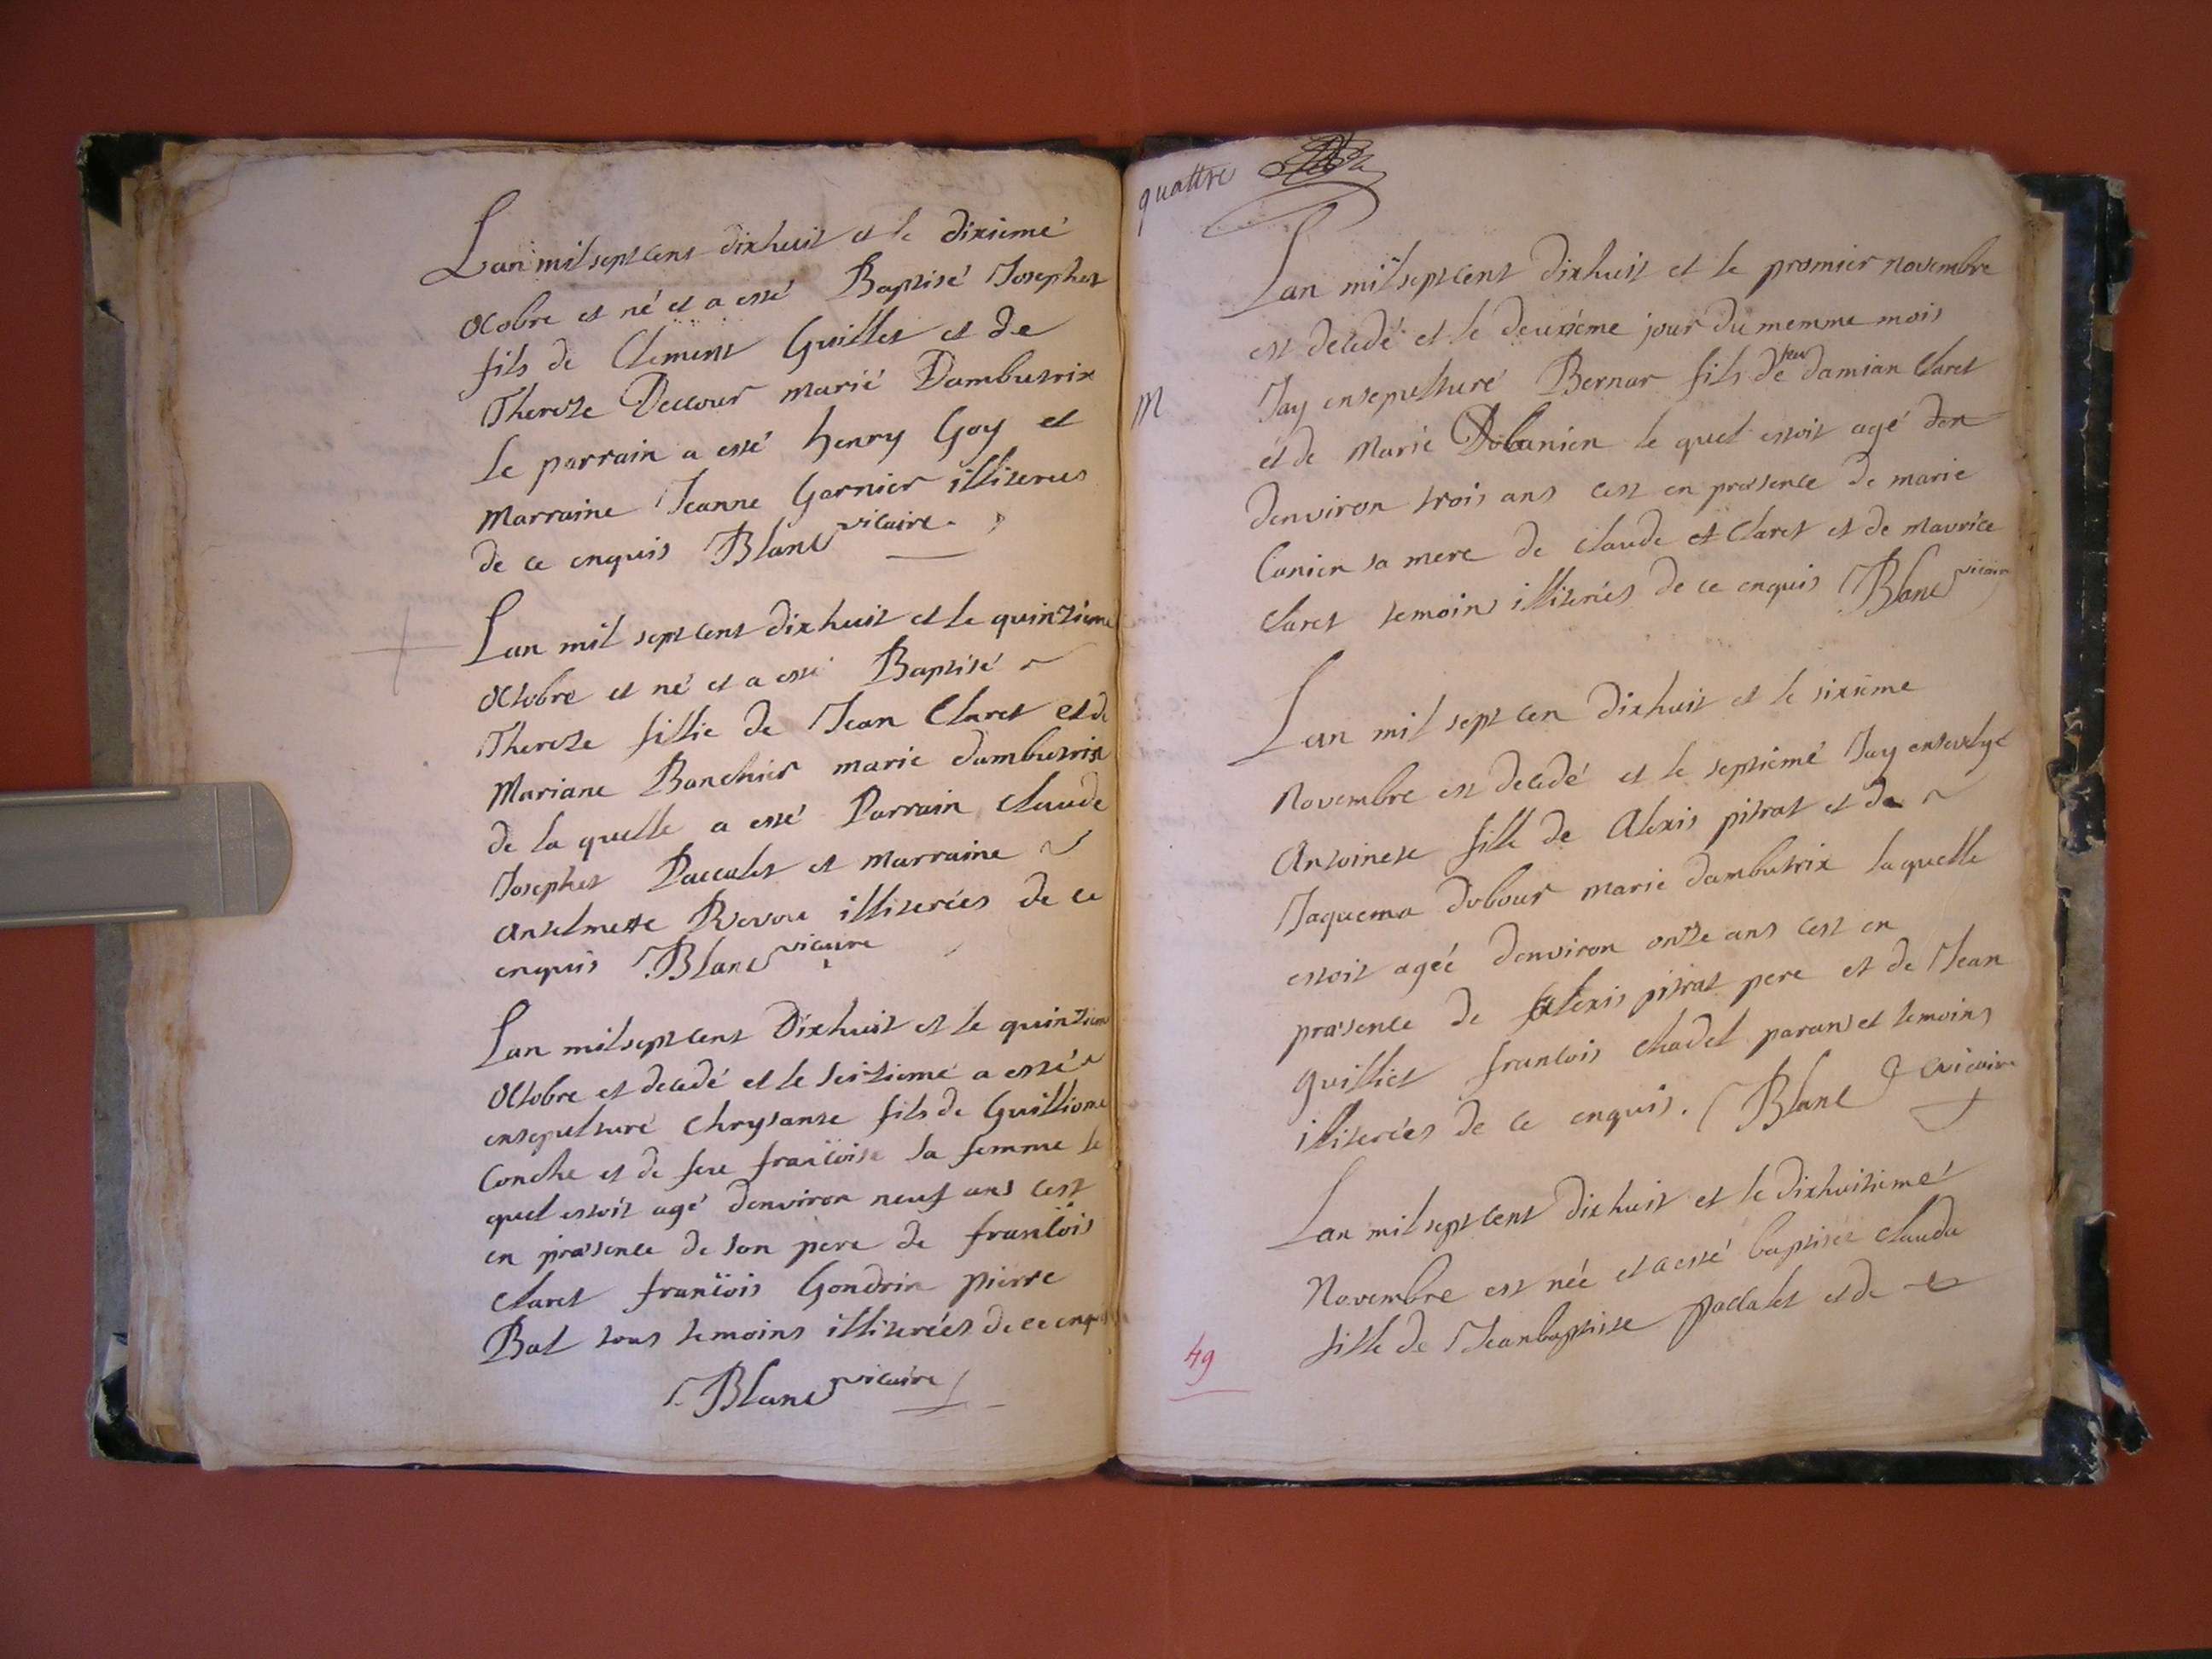 Lan mil sept cens dixhuit et le dixieme
Octobre et né et a esté Baptisé Josephet
fils de Clement Guillet et de
Thereze Deccour marié Dambutrix
le parrain a esté henry Goy et
Marraine Jeanne Garnier illiterees
de ce enquis Blanc vicaire
Lan mil sept cens dixhuit et le quinzieme
Octobre et né et a esté Baptisé
Thereze fillie de Jean Claret et de
Mariane Banchier marie dambutrix
de la quelle a esté Parrain Claude
Josephet Paccalet et Marraine
Anselmette Revove illiterées de ce
enquis Blanc vicaire
Lan mil sept cens Dixhuit et le quinzieme
Octobre et decedé et le seizieme a esté
ensepulturé Chrysante fils de Guilliome
Conche et de feue francoise sa femme le
quel estoit agé denviron neuf ans cest
en præsence de son pere de francois
Claret francois Gondrin pierre
Bal tous temoins illiterées de ce enquis
Blanc vicaire
quattre
Lan mil sept cens dixhuit et le premier novembre
est decedé et le deuxieme jour du memme mois
M
Jay ensepulturé Bernar fils de feu damian Claret
et de Marie Dobanien le quel estoit agé den
denviron trois ans cest en præsence de marie
Canien sa mere de Claude et Claret et de maurice
Claret temoins illiterés de ce enquis Blanc vicaire
Lan mil sept cen dixhuit et le sixieme
Novembre est decedé et le septiemé Jay ensevelyé
Antoinete fille de Alexis pitrat et de
Jaquema dubour marie dambutrix laquelle
estoit agéé denviron onze ans cest en
præsence de Alexis pitrat pere et de Jean
guilliet francois Chadel parans et temoins
illiterées de ce enquis. Blanc vicaire
Lan mil sept cens dixhuit et le dixhuitiemé
Novembre est néé et a esté baptisée Clauda
fille de Jeanbaptiste paccalet et de
49